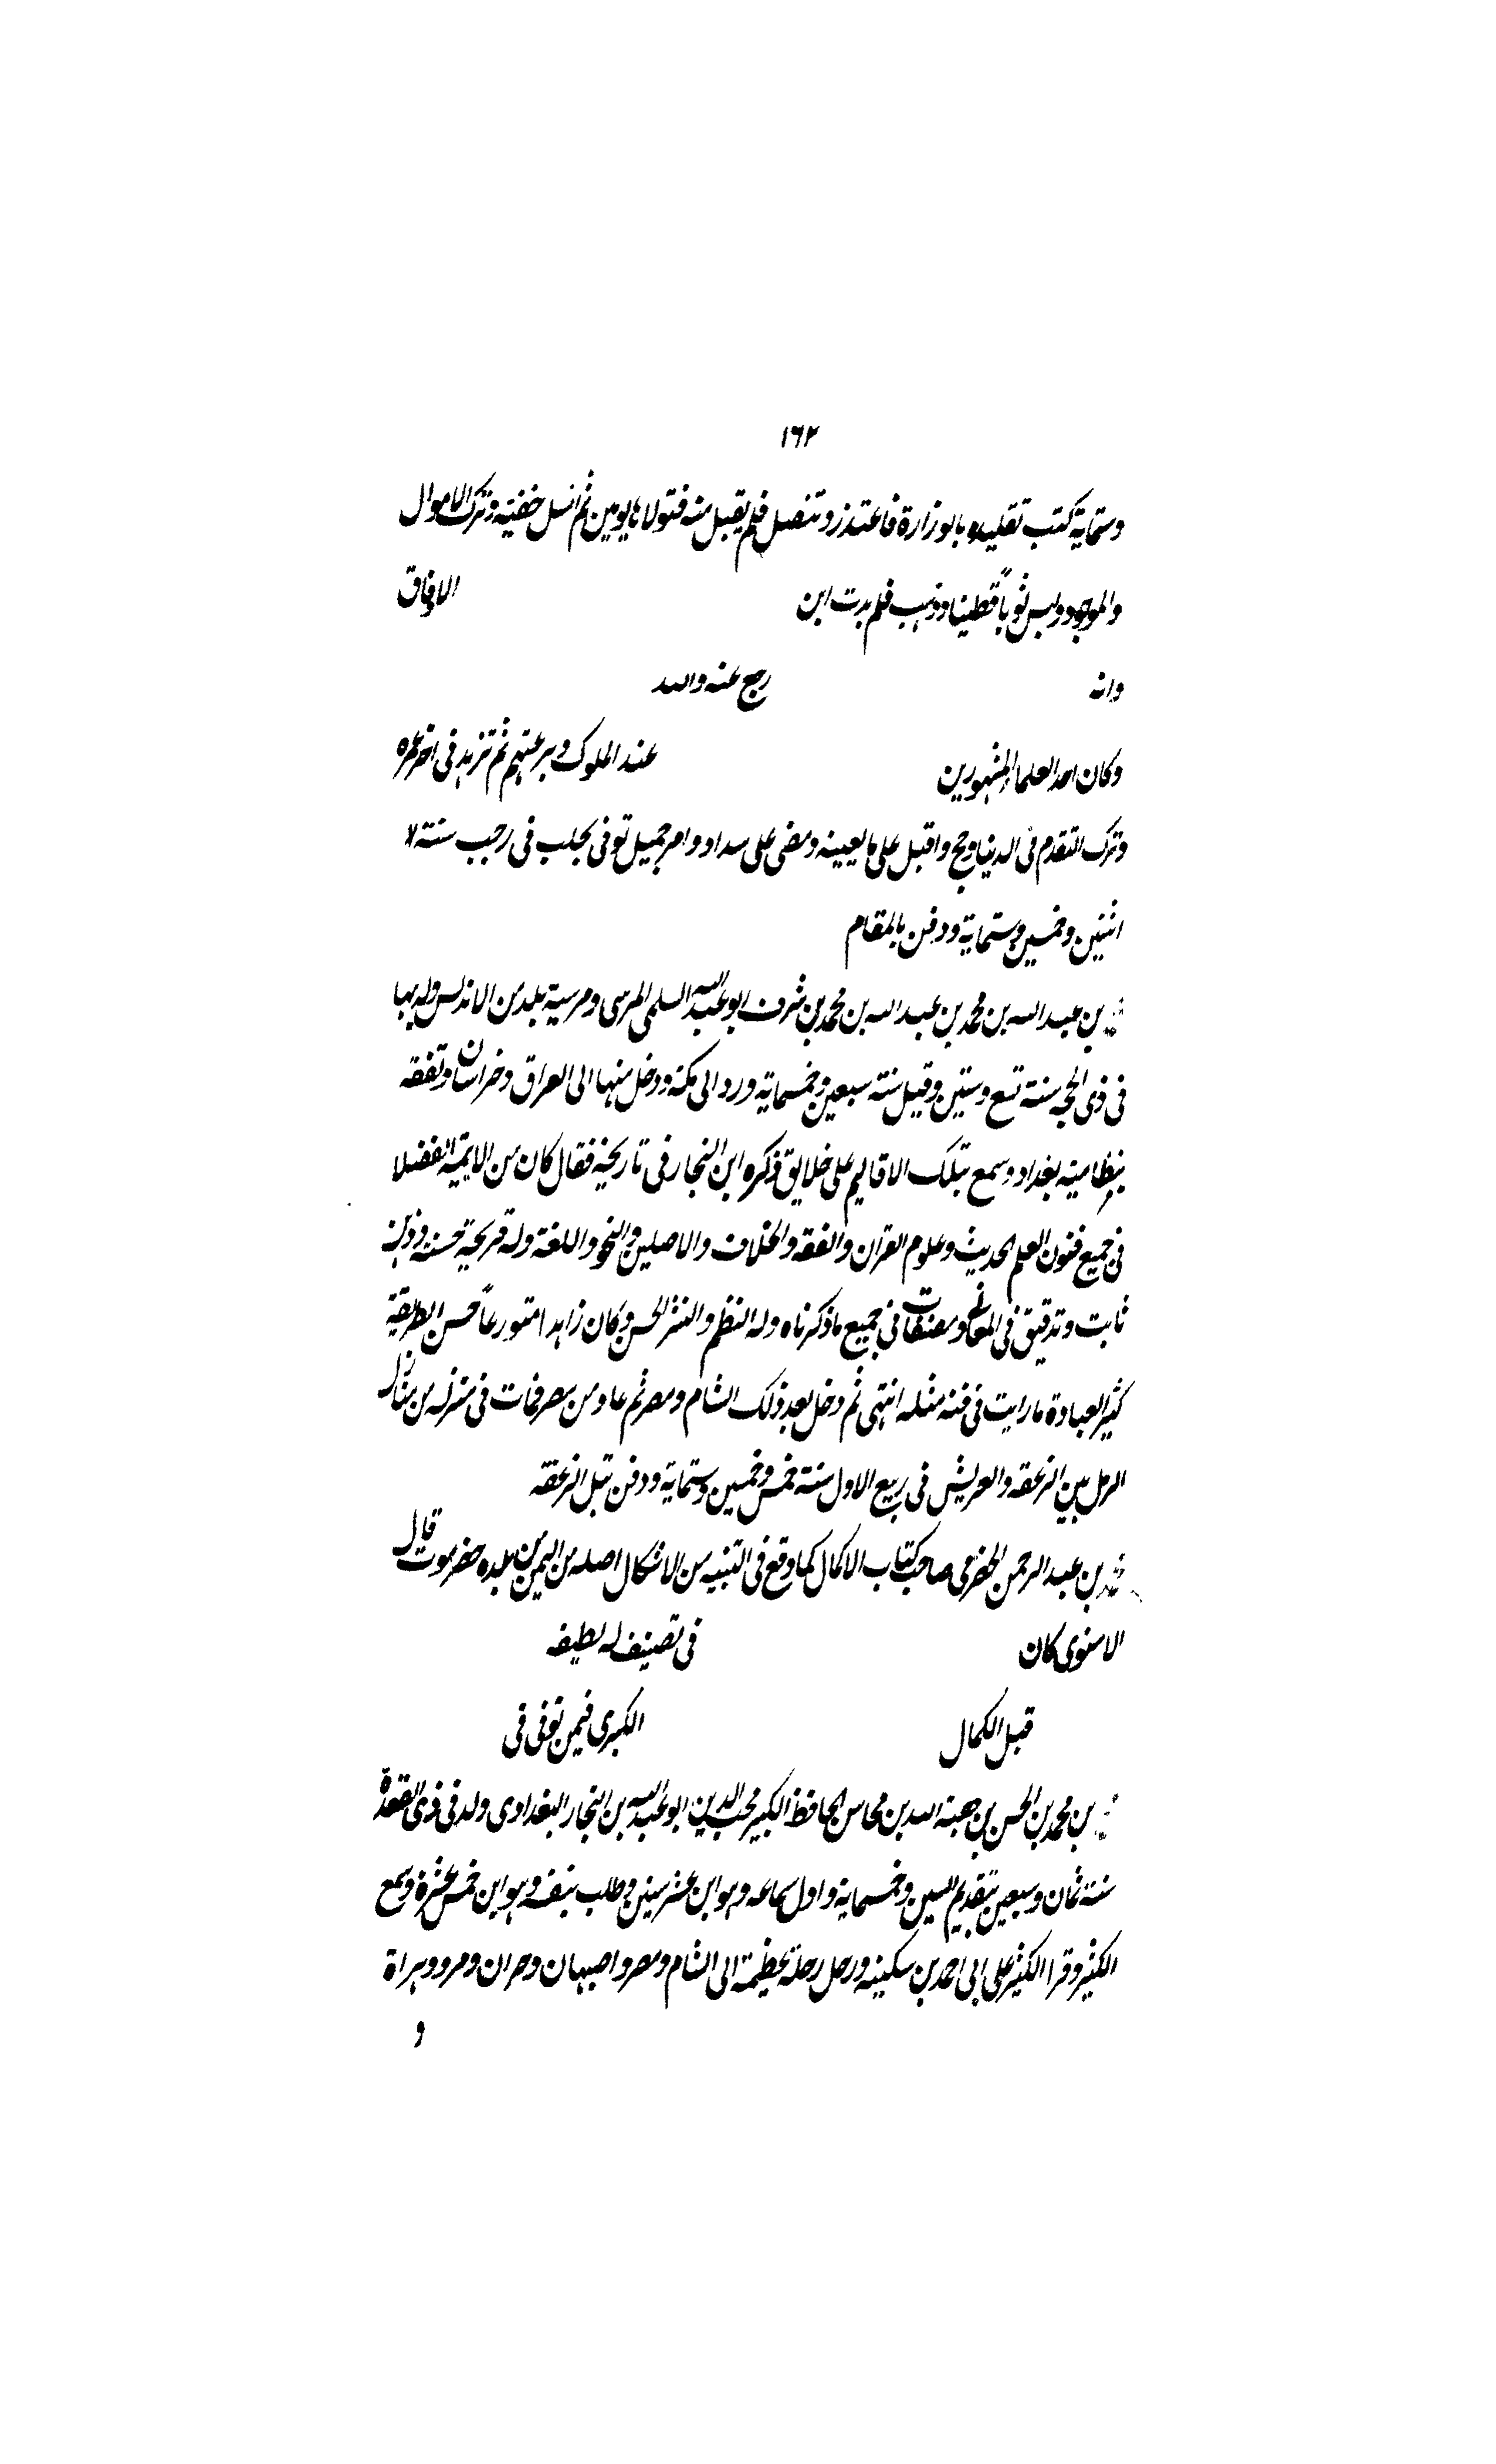 ١٦٢
وستماية كتب تقليده بالوزارة فاعتذر وتنصل فلم يقبل منه فتولاها يومين ثم انسل خفية وترك الاموال
والموجود ولبس ثوباً قطينا وذهب فلم بدت اين الافاق
وانه رجع عنه والله
وكان احد العلما المشهورين عند الملوك وبرعتهم ثم تزهد في اخر عمره
وترك التقدم في الدنيا وحج واقبل على ما يعينه ومضى على سداد وامر جميل توفى بحلب في رجب سنة
اثنين وخمسين وستماية ودفن بالمقام
بن عبد الله بن محمد بن عبد الله بن محمد بن شرف ابو عبد الله السلمى المرسى ومرسية بلد من الاندلس ولد بها
في ذى الحجه سنة تسع وستين وقيل سنة سبعين وخمسماية ورد الى مكة ودخل منها الى العراق وخراسان وتفقه
بنظامية بغداد وسمع بتلك الاقاليم على خلايق ذكره ابن النجار في تاريخه فقال كان من الايمة الفضلا
في جميع فنون العلم الحديث وعلوم القران والفقه والخلاف والاصلين والنحو واللغة وله قريحة حسنة وذهن
ثابت وتدقيق في المعاني ومصنفات في جميع ما ذكرناه وله النظم والنثر الحسن وكان زاهدا متورعاً حسن الطريقة
كثير العبادة ما رايت في فنه مثله انتهى ثم دخل بعد ذلك الشام ومصر ثم عاد من مصر فمات في منزله من منازل
الرمل بين الزعقه والعريش في ربيع الاول سنة خمس وخمسين وستماية ودفن بتل الزعقه
بن عبد الرحمن الحضرمى صاحب كتاب الاكمال كما وقع في التنبيه من الاشكال اصله من اليمن من بلده حضرموت قال
الاسنوى كان في تصنيف له لطيف
قبل الكمال الكبرى فيمن توفى في
بن محمد بن الحسن بن هبة الله بن محاسن الحافظ الكبير محب الدين ابو عبد الله بن النجار البغدادى ولد في ذى القعدة
سنة ثمان وسبعين بتقديم السين وخمسماية واول سماعه وهو ابن عشر سنين وطلب بنفسه وهو ابن خمس عشرة وسمع
الكثير وقرا الكثير على ابى احمد بن سكينه ورحل رحلة عظيمة الى الشام ومصر واصبهان وحران ومرو وهراة
و